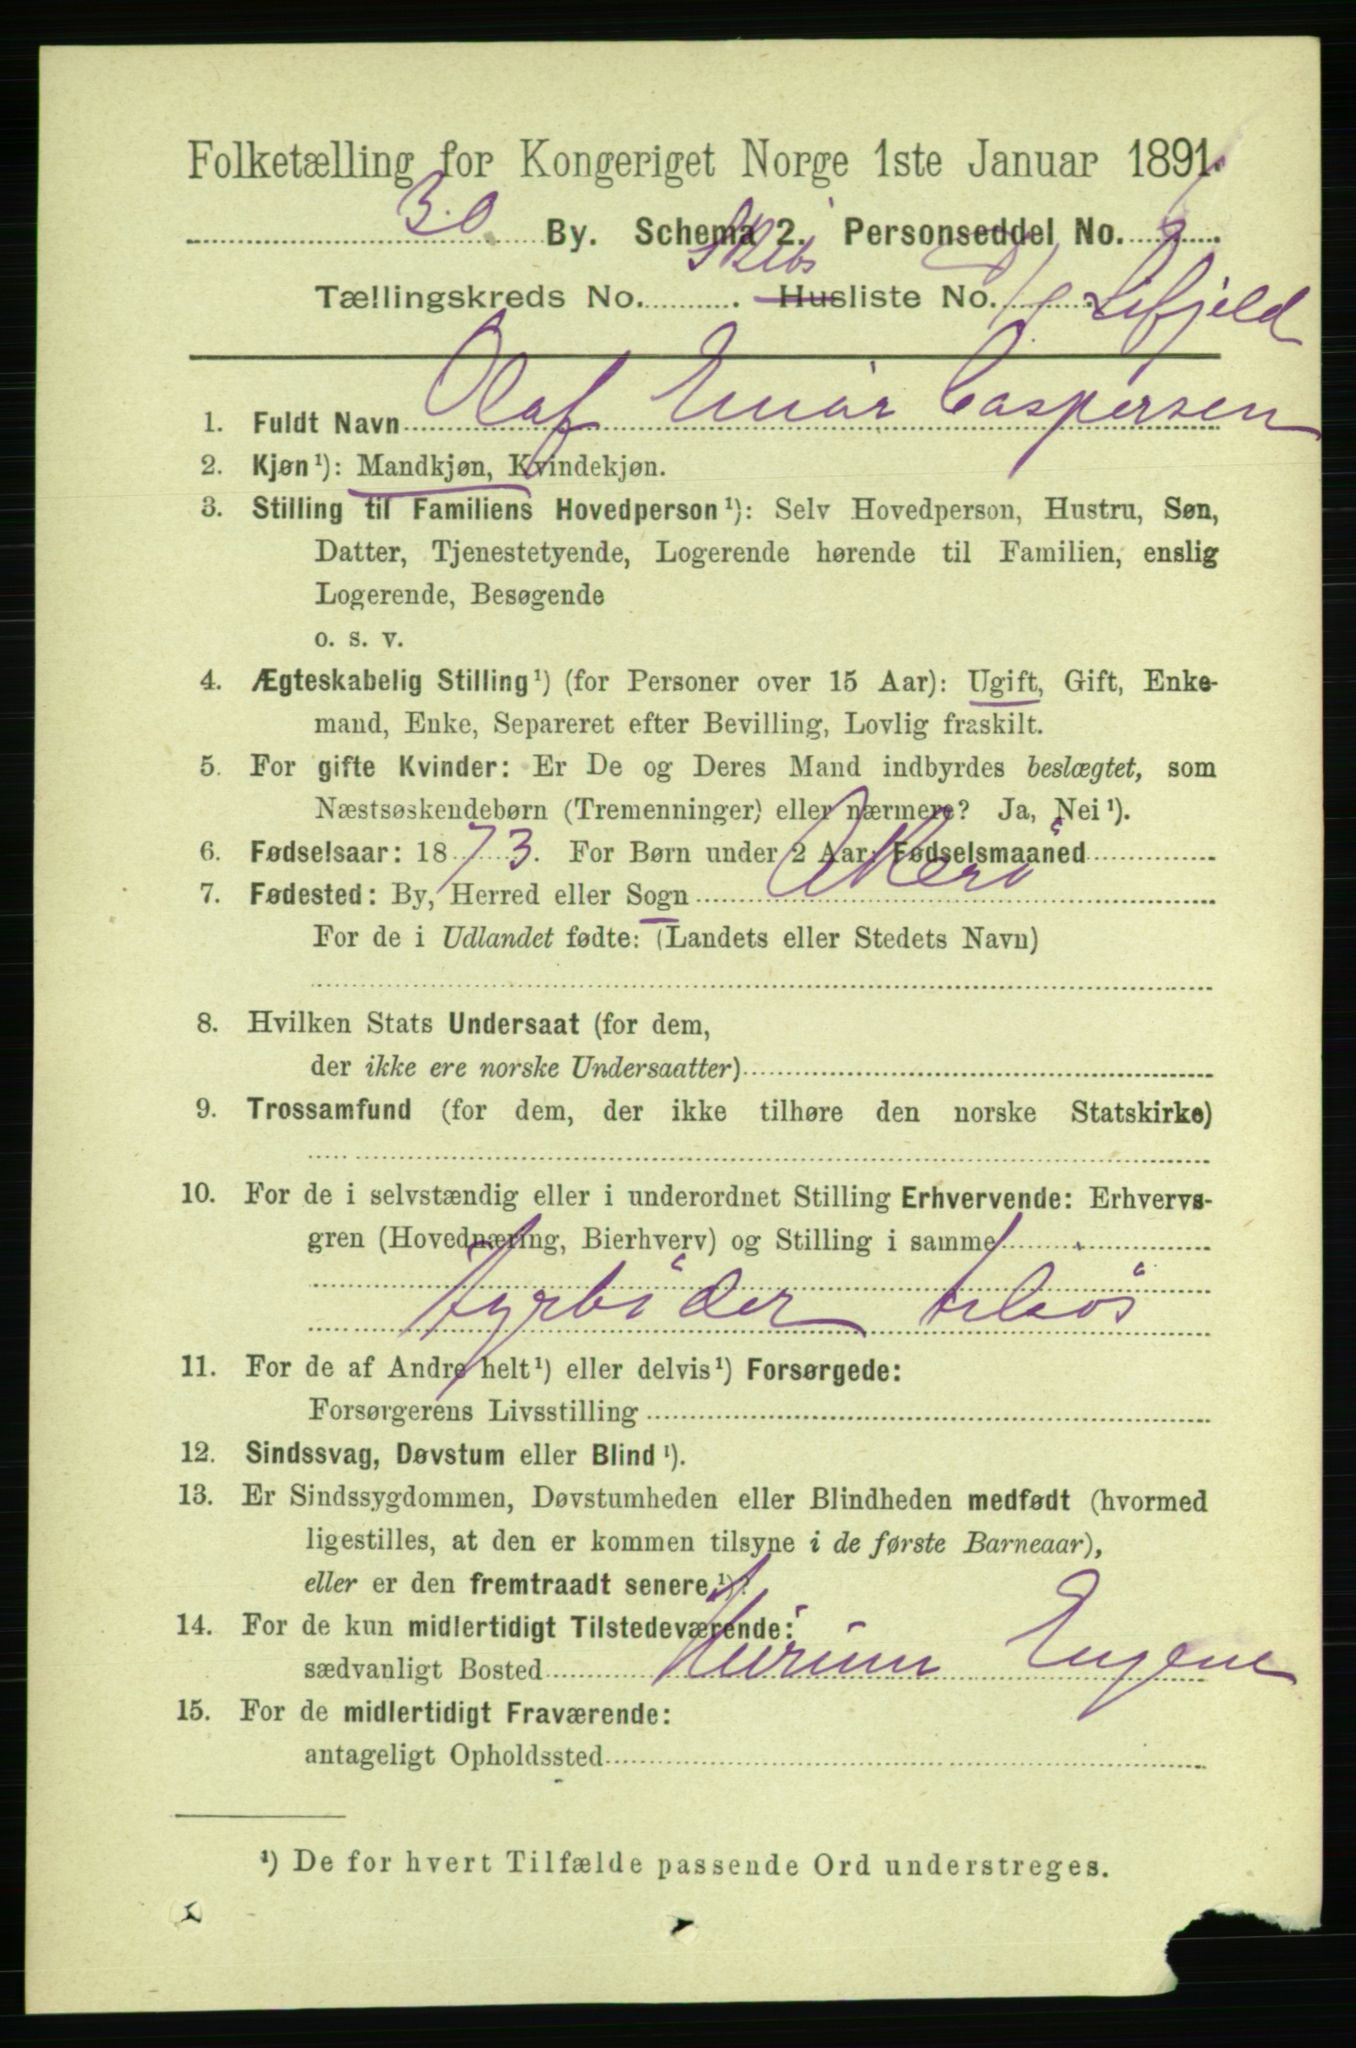 Folketælling for Kongeriget Norge 1ste Januar 1891.
30 By. Schema 2. Personseddel No.
Tællingskreds No. Husliste No.
Skibs
Lifjeld
1. Fuldt Navn Olaf Einar Caspersen
2. Kjøn ¹): Mandkjøn, Kvindekjøn.
3. Stilling til Familiens Hovedperson ¹): Selv Hovedperson, Hustru, Søn,
Datter, Tjenestetyende, Logerende hørende til Familien, enslig
Logerende, Besøgende
o. s. v.
4. Ægteskabelig Stilling ¹) (for Personer over 15 Aar): Ugift, Gift, Enke-
mand, Enke, Separeret efter Bevilling, Lovlig fraskilt.
5. For gifte Kvinder: Er De og Deres Mand indbyrdes beslægtet, som
Næstsøskendebørn (Tremenninger) eller nærmere? Ja, Nei ¹).
6. Fødselsaar: 1873. For Børn under 2 Aar: Fødselsmaaned
7. Fødested: By, Herred eller Sogn Akerö
For de i Udlandet fødte: (Landets eller Stedets Navn)
8. Hvilken Stats Undersaat (for dem,
der ikke ere norske Undersaatter)
9. Trossamfund (for dem, der ikke tilhøre den norske Statskirke)
10. For de i selvstændig eller i underordnet Stilling Erhvervende: Erhvervs-
gren (Hovednæring, Bierhverv) og Stilling i samme
Fyrböder
11. For de af Andre helt ¹) eller delvis ¹) Forsørgede:
Forsørgerens Livsstilling
12. Sindssvag, Døvstum eller Blind ¹).
13. Er Sindssygdommen, Døvstumheden eller Blindheden medfødt (hvormed
ligestilles, at den er kommen tilsyne i de første Barneaar),
eller er den fremtraadt senere ¹).
14. For de kun midlertidigt Tilstedeværende:
sædvanligt Bosted Eugene
15. For de midlertidigt Fraværende:
antageligt Opholdssted
¹) De for hvert Tilfælde passende Ord understreges.